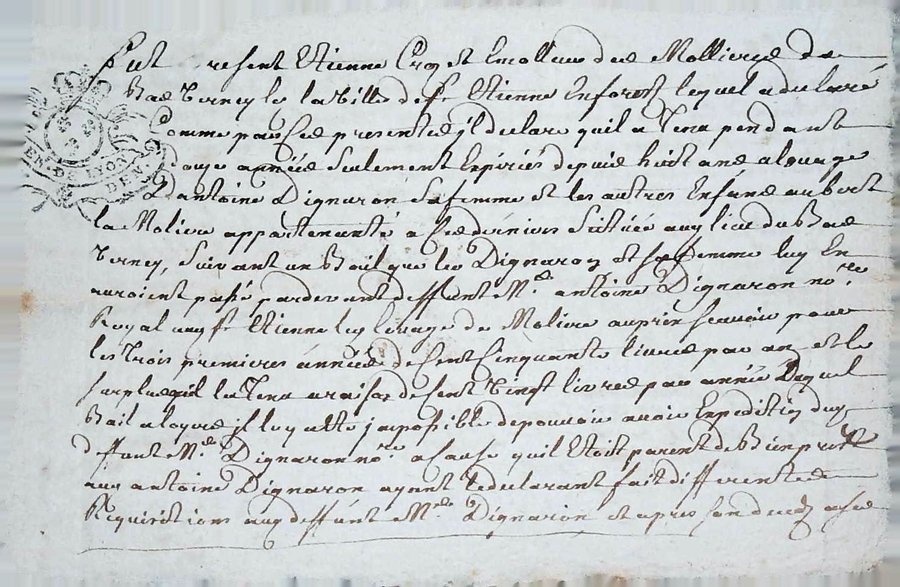 Fut present Etienne Croz et Emolleur des Mollieres de
Bas Terney les la Ville de St Etienne En forest lequel a declaré
Comme par ses presentes il declare quil a Tenu pendant
onze années seulement Expirés depuis huit ans a louage
D antoine Dignaron sa femme et les autres Enfans aubert
la Moliere appartenante a ses derniers Situéé au lieu du Bas
Terney, Suivant un Bail que les Dignaron et sa femme luy En
auroient passé pardevant deffunt Me antoine Dignaron nore
Royal au St Etienne le louage de Moliere au prix scavoir pour
les Trois premieres années de Cent Cinquante livres par an et le
surplus il la Tenu a raison de Cent Vingt livres par année Duquel
Bail a loyer il luy a été impossible de pouvoir avoir Expedition dug
deffunt Me Dignaron nore a Cause quil Etoit parent de Bien pres
aux antoine Dignaron ayant le declarant fait differentes
Requisitions aug deffunt Me Dignaron et apres son deces a ses
EN DE LYON